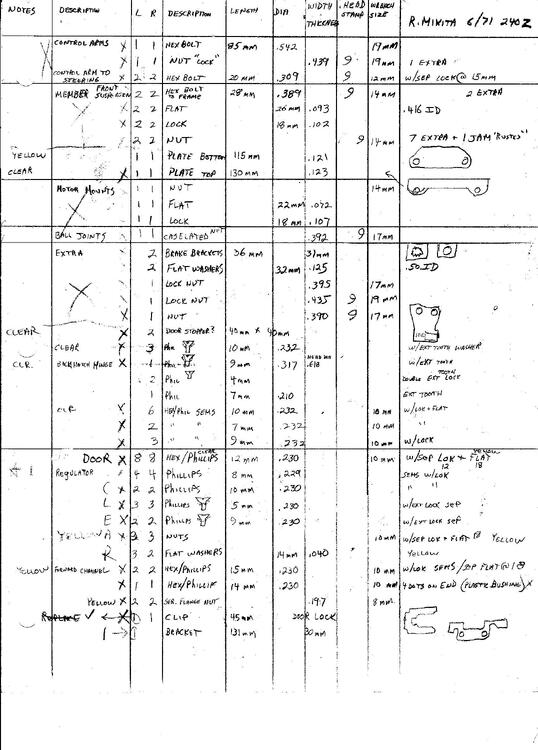 NOTES DESCRIPTION L R DESCRIPTION LENGTH DIA WIDTH THICKNESS HEAD STAMP WRENCH SIZE R. MIKITA 6/71 240Z
CONTROL ARMS X 1 1 HEX BOLT 85 mm .542 19 mm
X 1 1 NUT "LOCK" .439 9 19 mm 1 EXTRA
CONTROL ARM TO STEERING X 2 2 HEX BOLT 20 mm .309 9 12 mm W/SEP LOCK @ 15mm
MEMBER FRONT SUSPENSION X 2 2 HEX BOLT TO FRAME 28 mm .389 9 14 mm 2 EXTRA
X 2 2 FLAT 26 mm .093 .416 ID
X 2 2 LOCK 18 mm .102
2 2 NUT 9 14 mm 7 EXTRA + 1 JAM "RUSTED"
YELLOW 1 1 PLATE BOTTOM 115 mm .121
CLEAR X 1 1 PLATE TOP 130 mm .123
MOTOR MOUNTS 1 1 NUT 14 mm
1 1 FLAT 22 mm .072
1 1 LOCK 18 mm .107
BALL JOINTS 1 1 CASELATED NUT .392 9 17 mm
EXTRA 2 BRAKE BRACKETS 36 mm 31mm
2 FLAT WASHERS 32 mm .125 .50 ID
1 LOCK NUT .395 17 mm
1 LOCK NUT .435 9 19 mm
X 1 NUT .390 9 17 mm
CLEAR X 2 DOOR STOPPER? 40 mm X 40mm
CLEAR X 3 PHIL 10 mm .232 W/EXT TOOTH WASHER
CLR. BACK HATCH HINGE X 1 PHIL 9 mm .317 .618 W/EXT TOOTH
2 PHIL 4 mm DOUBLE EXT TOOTH LOCK
1 PHIL 7 mm .210 EXT TOOTH
CLR X 6 HEX/PHIL SEMS 10 mm .232 10 mm W/LOK + FLAT
X 2 " " 7 mm .232 10 mm "
X 3 " " 9 mm .232 10 mm W/LOCK
DOOR X 8 8 HEX/PHILLIPS CLEAR 12 mm .230 10 mm W/SEP LOK + FLAT YELLOW 12 18
1 REGULATOR X 4 4 PHILLIPS 8 mm .229 SEMS W/LOK
C X 2 2 PHILLIPS 10 mm .230 " "
L X 3 3 PHILLIPS 5 mm .230 W/EXT LOCK SEP
E X 2 2 PHILLIPS 9 mm .230 W/EXT LOCK SEP
YELLOW A X 3 3 NUTS 10 mm W/SEP LOK + FLAT @ YELLOW
R 3 2 FLAT WASHERS 14 mm .040 YELLOW
YELLOW FORWARD CHANNEL X 2 2 HEX/PHILLIPS 15 mm .230 10 mm W/LOK SEMS /SEP FLAT @ 18
X 1 1 HEX/PHILLIP 14 mm .230 10 mm 4 DOTS ON END (PLASTIC BUSHING) X
YELLOW X 2 2 SER. FLANGE NUT .197 8 mm
REPLACE ✓ ← X 1 1 CLIP 45 mm DOOR LOCK
1 → 1 BRACKET 131 mm 30 mm